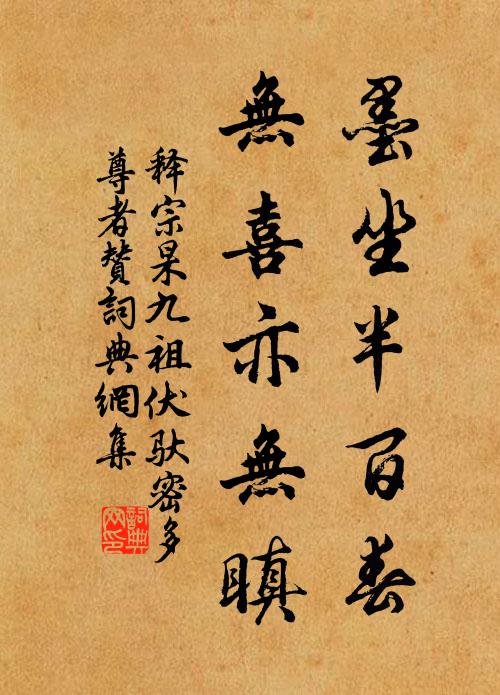 墨坐半百春
無喜亦無瞋
释宗杲九祖伏驮密多
尊者賛詞典網集
詞典